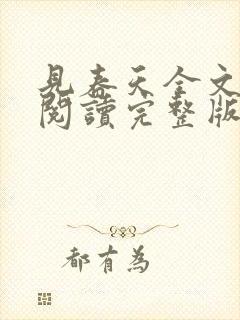 見春天全文
閱讀完整版
都有為